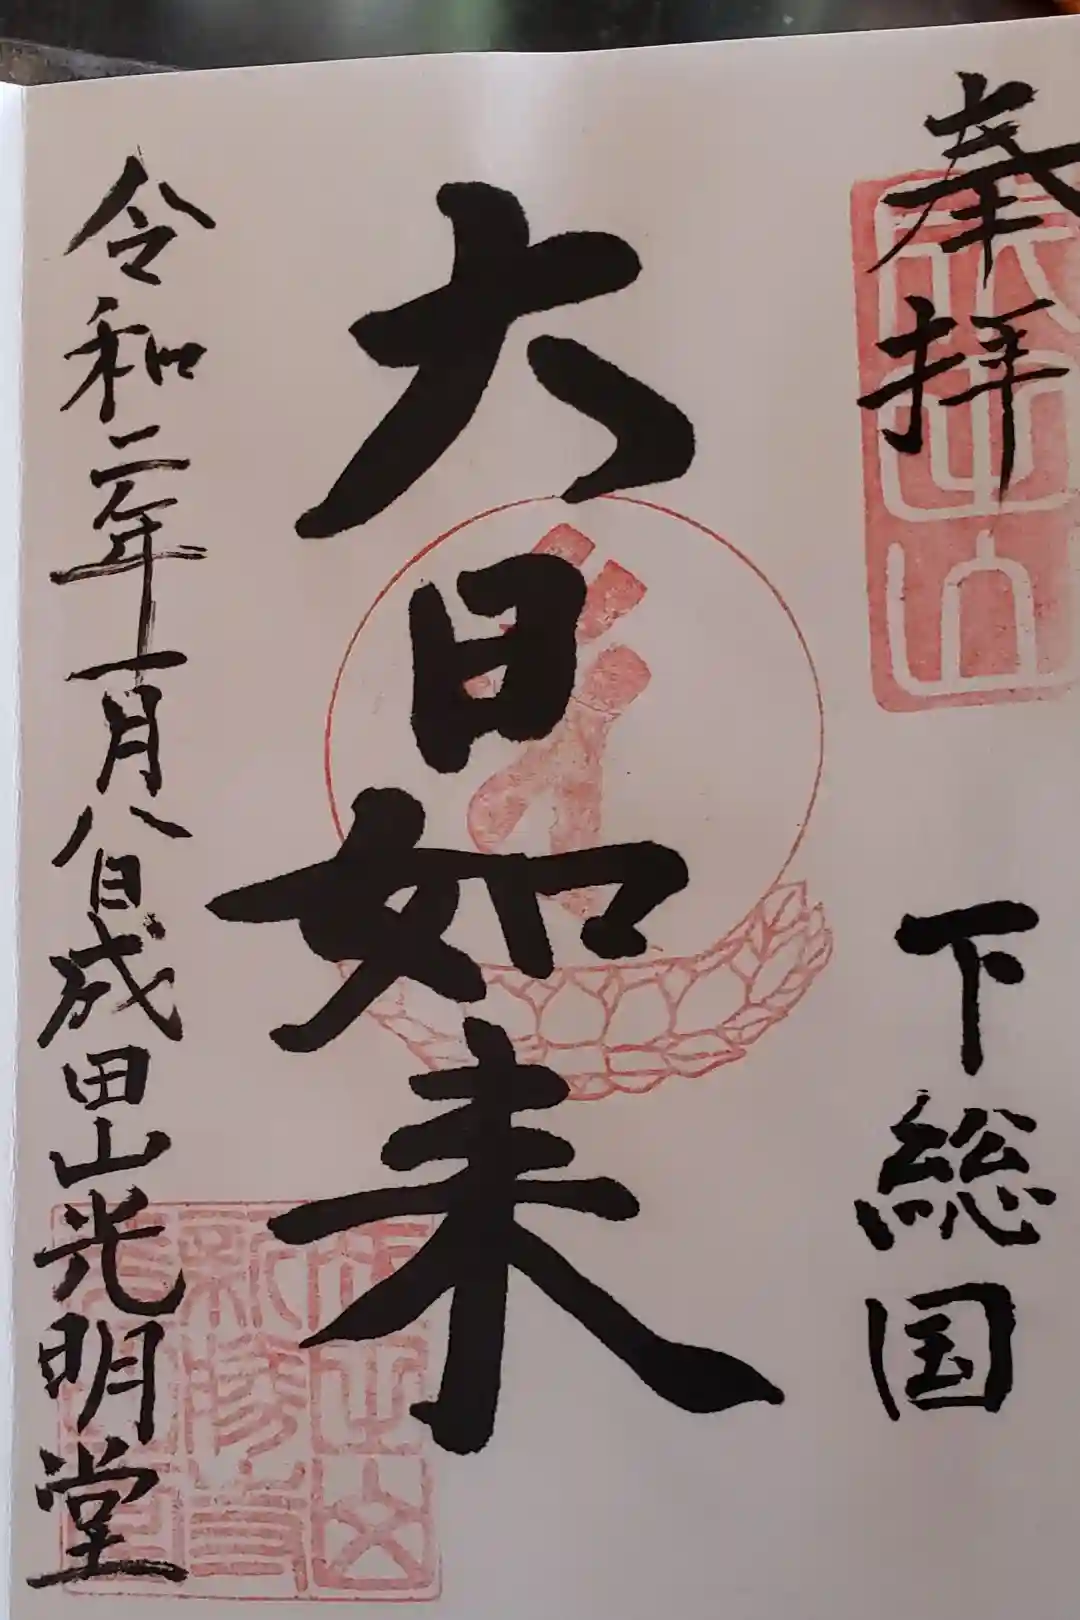 奉拝
成田山
下総国
大日如来
令和二年一月八日成田山光明堂
成田山
新勝寺